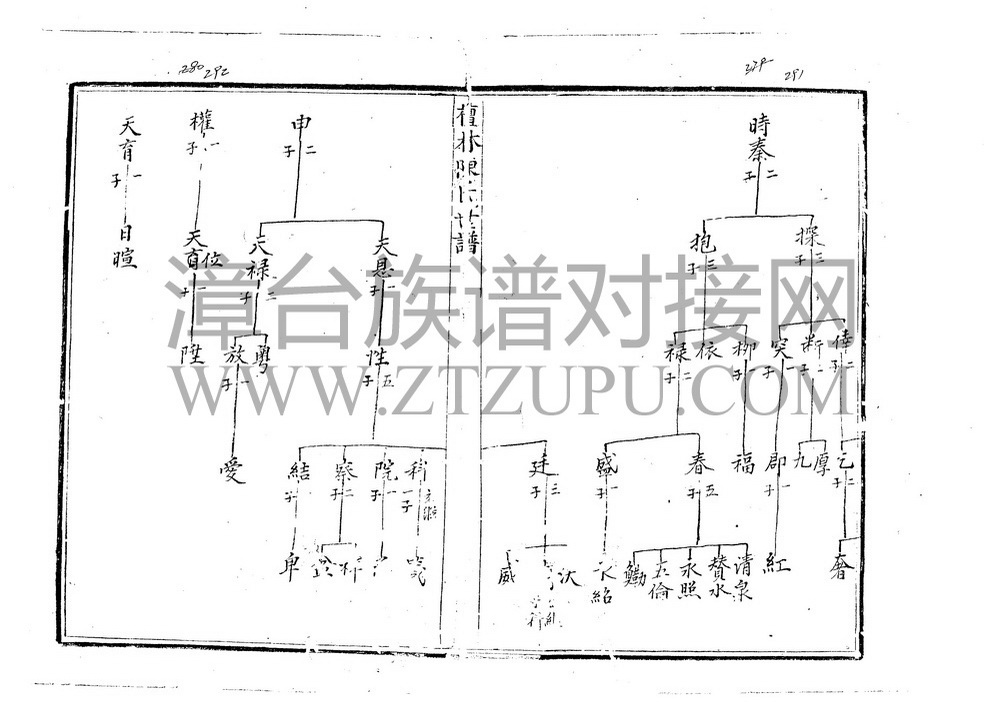 279
291
時秦
二子
探
三子
抱
三子
倖
二子
斷
二子
突
一子
柳
一子
依
禄
二子
乞
二子
厚
九
郡
一子
福
春
五子
盛
一子
廷
三子
奢
紅
清泉
贊水
永照
五倫
勷
紹
沃
威
檀林陳氏世譜
280
292
申
二子
天恩
一子
天禄
二子
性
五子
粵
放
一子
科
一子
院
一子
二子
結
一子
愛
權
一子
天育位
一子
陞
天育
一子
日暄
漳台族谱对接网
WWW.ZTZUPU.COM